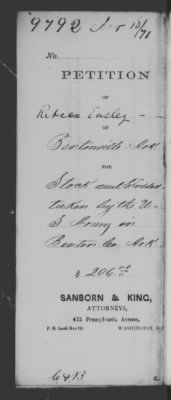 9792 Apr 15/71
No.
PETITION
OF
Rebeca Easley
OF
Bentonville Ark
FOR
Stock and Fodder
taken by the U
S Army in
Benton Co Ark
$ 206.00
SANBORN & KING,
ATTORNEYS,
475 Pennsylvania Avenue,
P. O. Lock Box
WASHINGTON, D.C.
6413